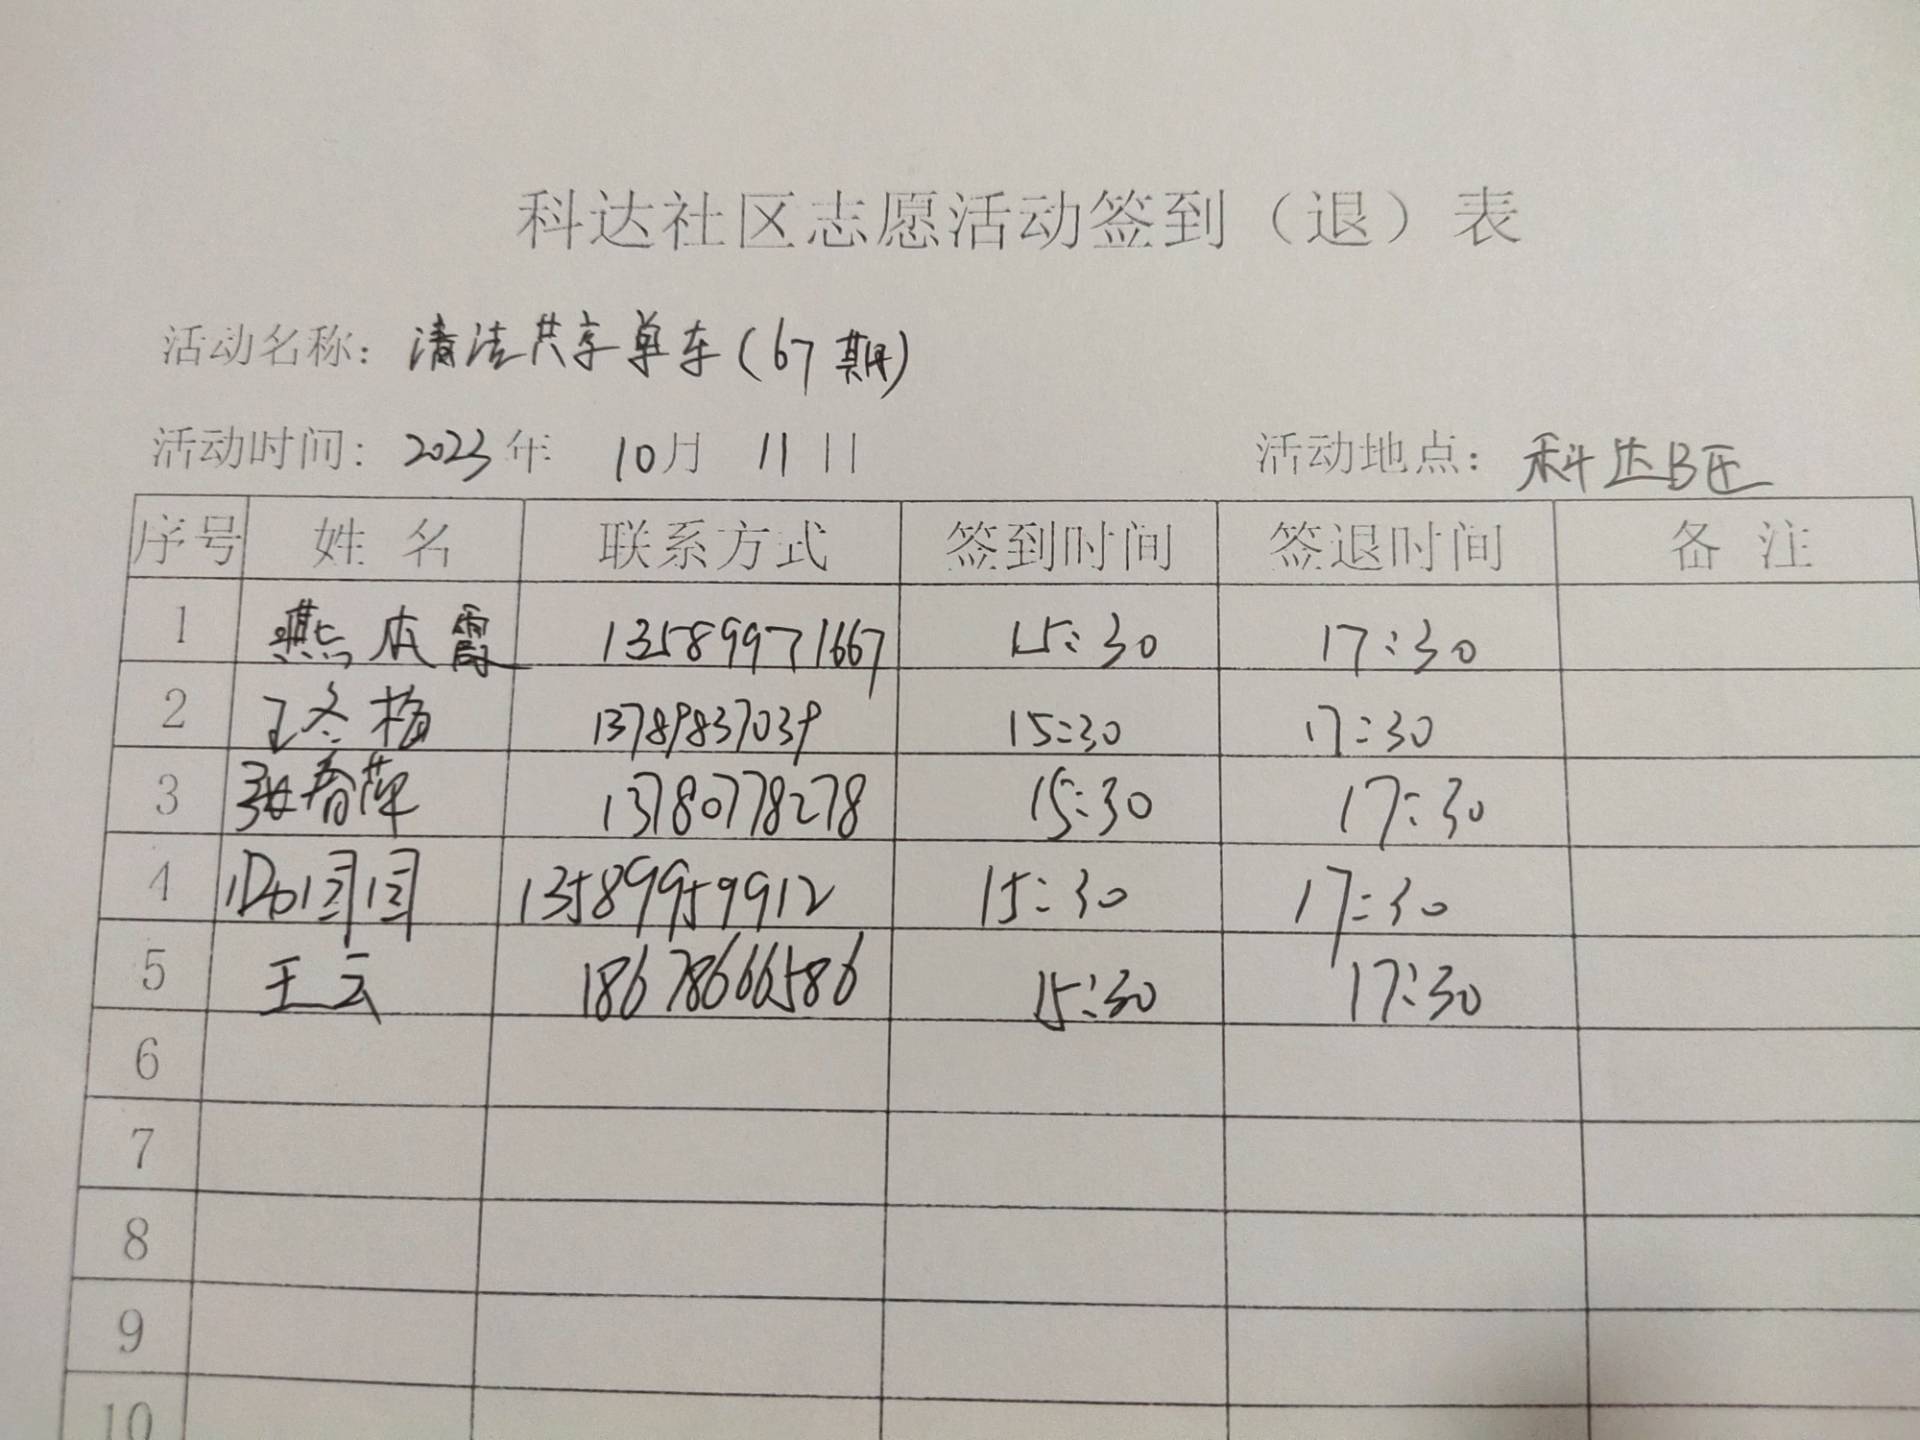 科达社区志愿活动签到（退）表
活动名称：清洁共享单车（67期）
活动时间：2023年 10月 11日 活动地点：科达B区
序号 姓 名 联系方式 签到时间 签退时间 备 注
1 燕本霞 13589971667 15:30 17:30
2 王冬梅 13789837039 15:30 17:30
3 张春萍 13780778278 15:30 17:30
4 13589959912 15:30 17:30
5 王云 18678666586 15:30 17:30
6
7
8
9
10